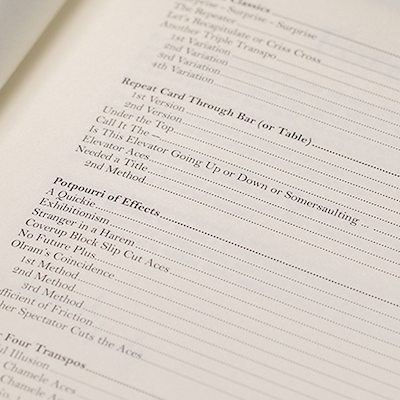 Classics
Surprise – Surprise – Surprise
The Repeater
Let's Recapitulate or Criss Cross
Another Triple Transpo
1st Variation
2nd Variation
3rd Variation
4th Variation
Repeat Card Through Bar (or Table)
1st Version
2nd Version
Under the Top
Call It The –
Is This Elevator Going Up or Down or Somersaulting
Elevator Aces
Needed a Title
2nd Method
Potpourri of Effects
A Quickie
Exhibitionism
Stranger in a Harem
Coverup Block Slip Cut Aces
No Future Plus
Olram's Coincidence
1st Method
2nd Method
3rd Method
efficient of Friction
her Spectator Cuts the Aces
r Four Transpos
ul Illusion
Chamele Aces
Chamele Aces